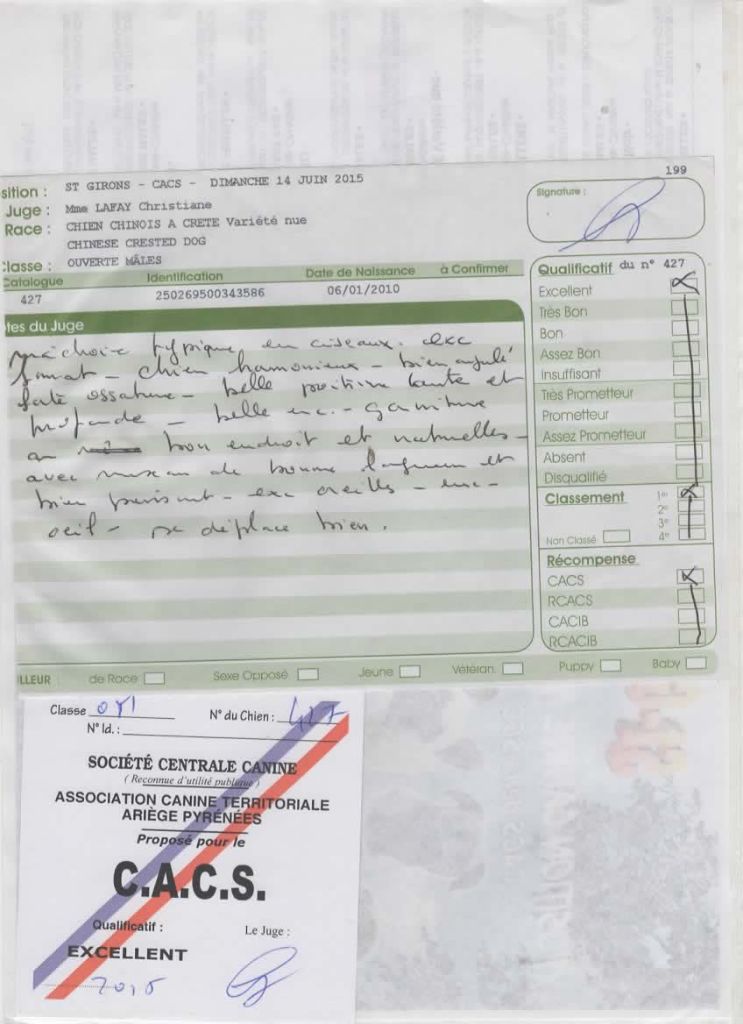 199
sition : ST GIRONS - CACS - DIMANCHE 14 JUIN 2015
Juge : Mme LAFAY Christiane
Race : CHIEN CHINOIS A CRETE Variété nue
CHINESE CRESTED DOG
Classe : OUVERTE MÂLES
Signature :
Catalogue Identification Date de Naissance à Confirmer
427 250269500343586 06/01/2010
Qualificatif du n° 427
Excellent
Très Bon
Bon
Assez Bon
Insuffisant
Très Prometteur
Prometteur
Assez Prometteur
Absent
Disqualifié
Classement 1er
2e
3e
Non Classé 4e
Récompense
CACS
RCACS
CACIB
RCACIB
tes du Juge
mâchoire typique en ciseaux. exc
format - chien harmonieux - bien angulé
forte ossature - belle poitrine haute et
profonde - belle
au bon endroit et naturelles -
avec museau de bonne longueur et
bien - exc oreilles -
oeil - se déplace bien.
ILLEUR : de Race Sexe Opposé Jeune Vétéran Puppy Baby
Classe N° du Chien : 427
N° Id. :
SOCIÉTÉ CENTRALE CANINE
( Reconnue d'utilité publique )
ASSOCIATION CANINE TERRITORIALE
ARIÈGE PYRÉNÉES
Proposé pour le
C.A.C.S.
Qualificatif : Le Juge :
EXCELLENT
2015